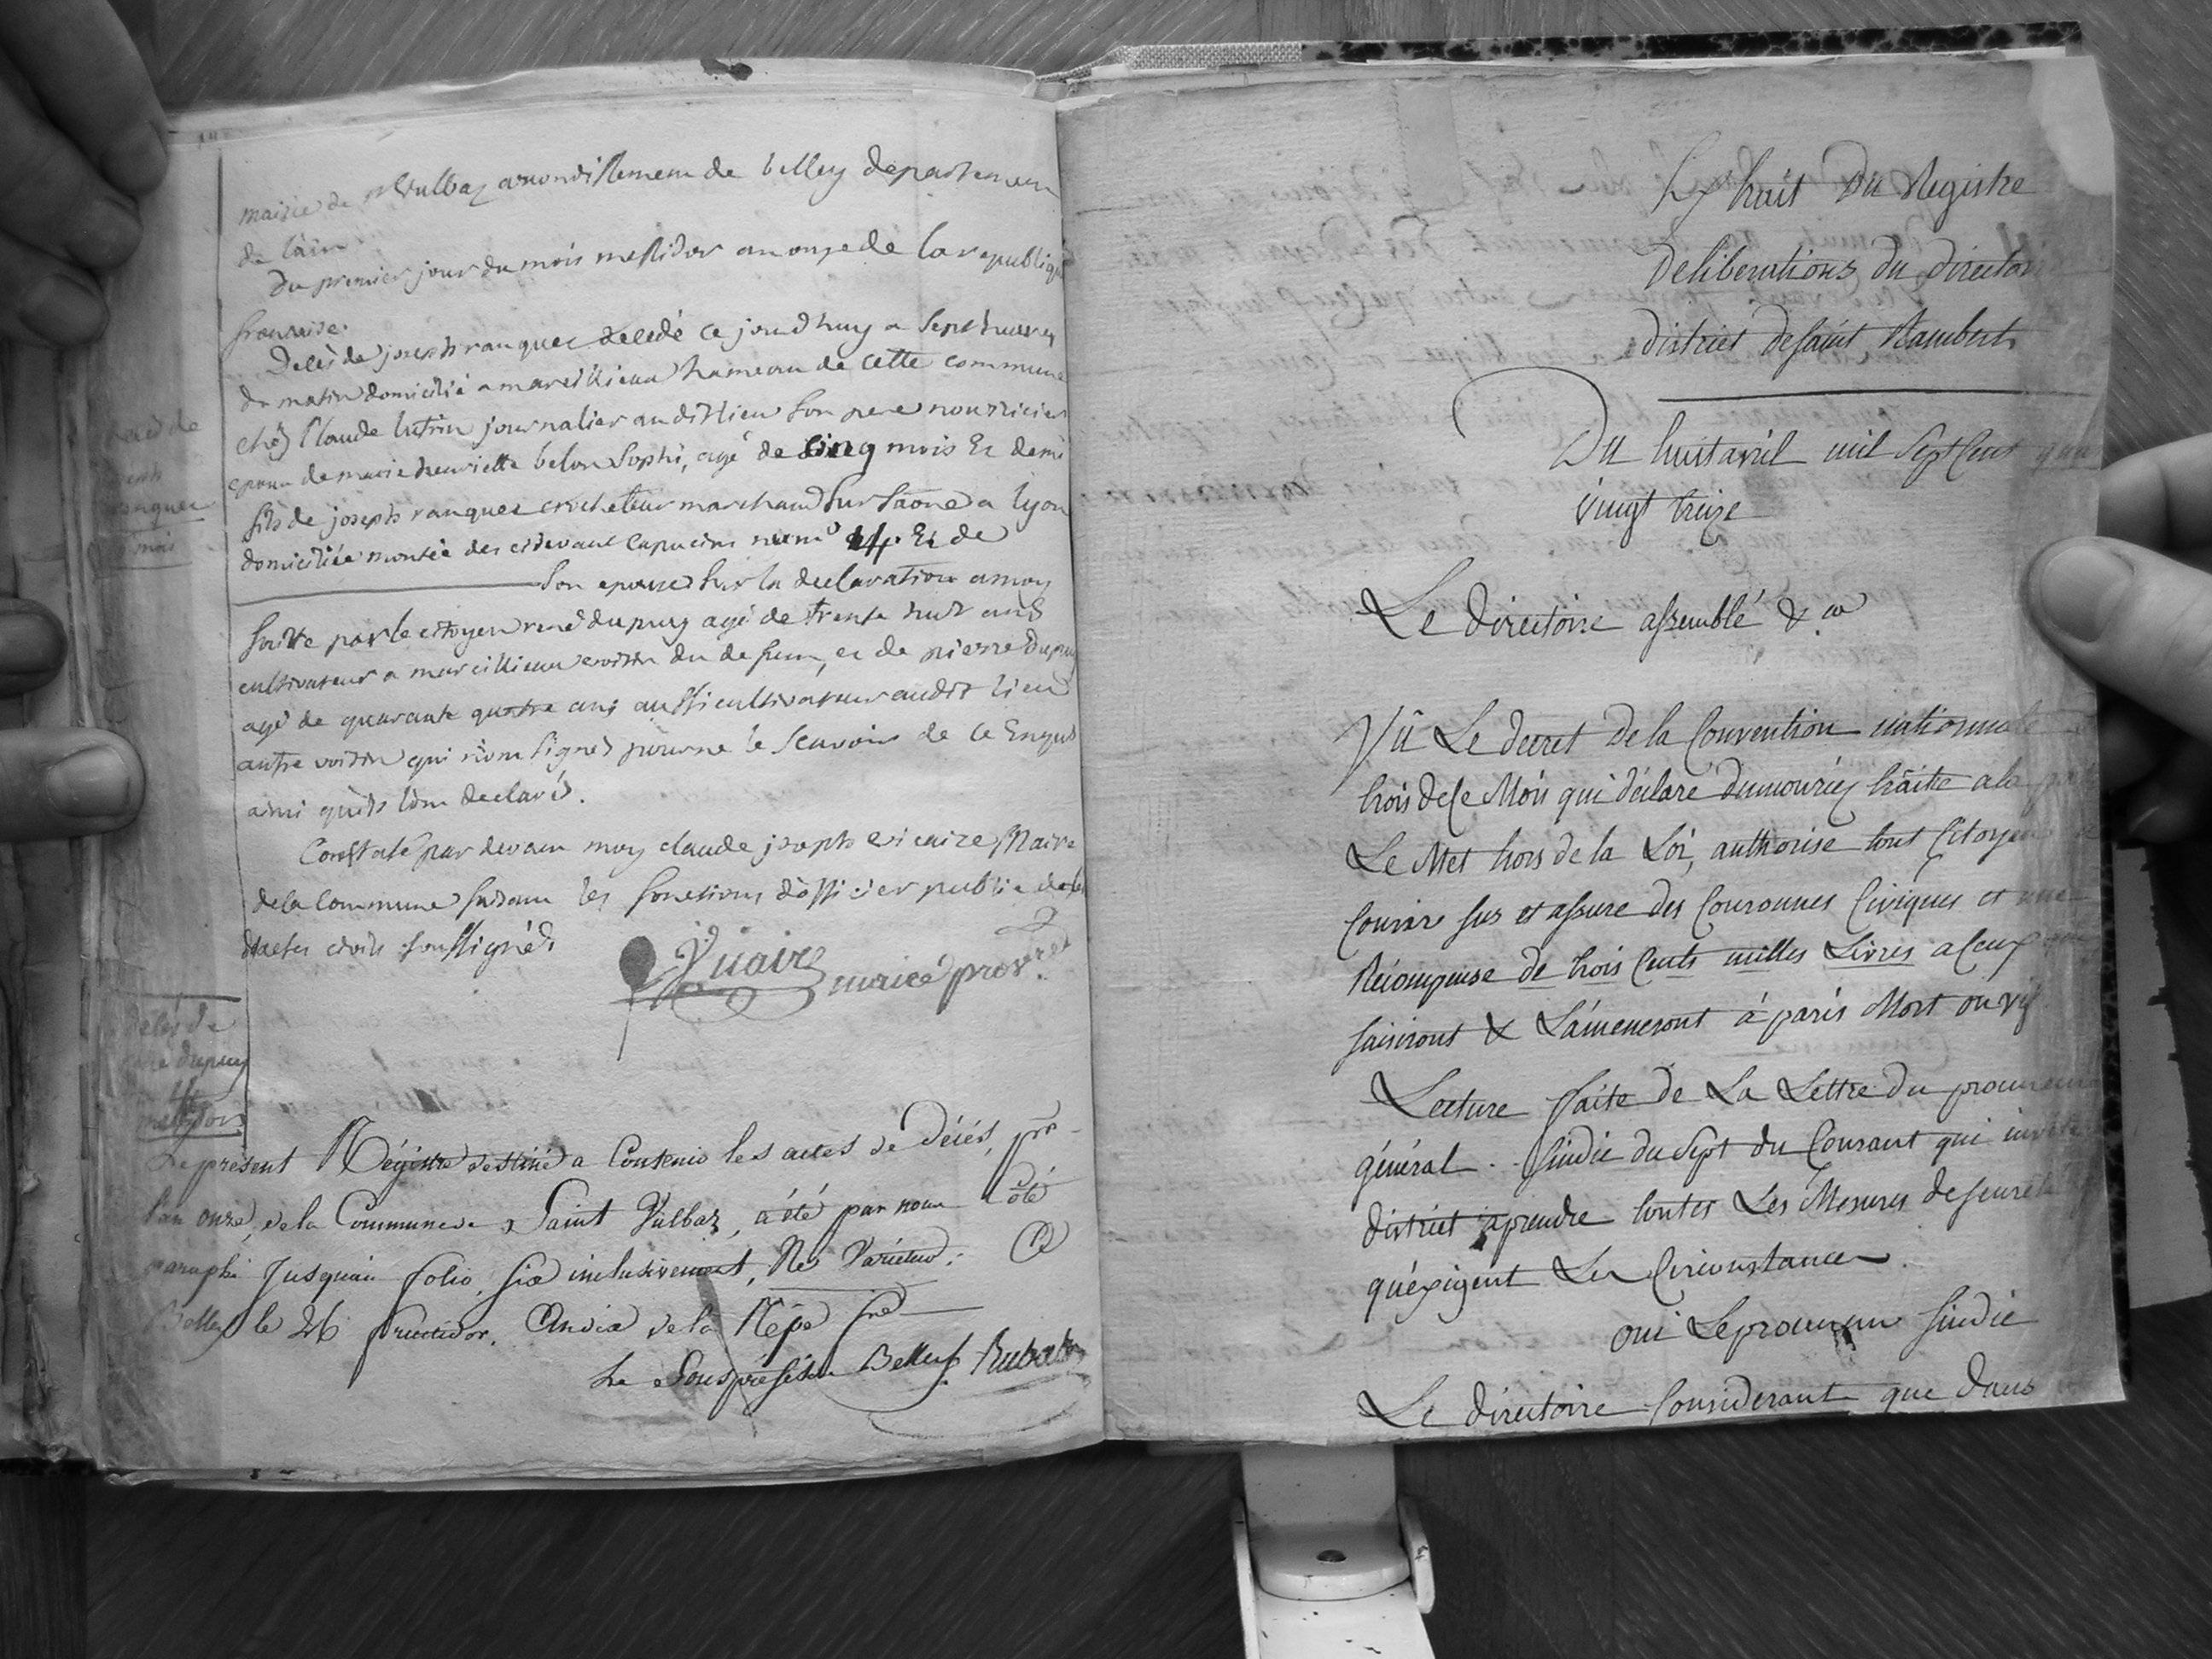 mairie de st Vulbaz arrondissement de belley departement
de lain
du premier jour du mois messidor an onze de la republique
francaise.
Décès de joseph ranquer decedé ce jourdhuy a sept heures
du matin domicilié a marcillieux hameau de cette commune
chez Claude lutrin journalier audit lieu son pere nourricier
epoux de marie henriette belon Sophi, agé de cinq mois Et demi
fils de joseph ranquer crocheteur marchand sur Saone a lyon
domiciliée montée des cidevant Capucins num° Et de
son epouse sur la declaration a moy
faitte par le citoyen rené dupuy agé de trente huit ans
cultivateur a marcillieux voisin du defunt, et de pierre Dupuy
agé de quarante quatre ans aussi cultivateur audit lieu
autre voisin qui nont signés pour ne le scavoir de ce Enquis
ainsi quils lont declarés.
Constaté par devant moy claude joseph vicaire Maire
de la Commune faisant les fonctions dofficier public
dactes civils soussignés
Vicaire maire provre
Décès de
dupuy
messidor
Le présent Régistre destiné a Contenir les actes de Décés, pr
l'an onze, de la Commune de Saint Vulbaz, a été par nous Coté
paraphé Jusquau folio, six inclusivement, Ne Varietur. A
Belley le 26 fructidor. An dix de la Répe fse
Le Souspréfet de Belley. Rubat
Extrait Du Registre
Deliberations du directoi
district de Saint Rambert
Du huit avril mil Sept Cent qua
vingt treize
Le directoire assemblé & ca
Vû Le decret De la Convention nationnale
trois de Ce Mois qui déclare dumouriez traitre a la
Le Met hors de la Loi, authorise tout Citoyen
Courir sus et assure des Couronnes Civiques et une
Récompense de trois Cents milles Livres a Ceux qui
saisiront & L'améneront à paris Mort ou vif
Lecture faite de La Lettre du procureur
général sindic du sept du Courant qui invite
district a prendre toutes Les Mesures de seureté
qu'éxigent Les Circonstances.
oui Le procureur sindic
Le directoire Considerant que dans